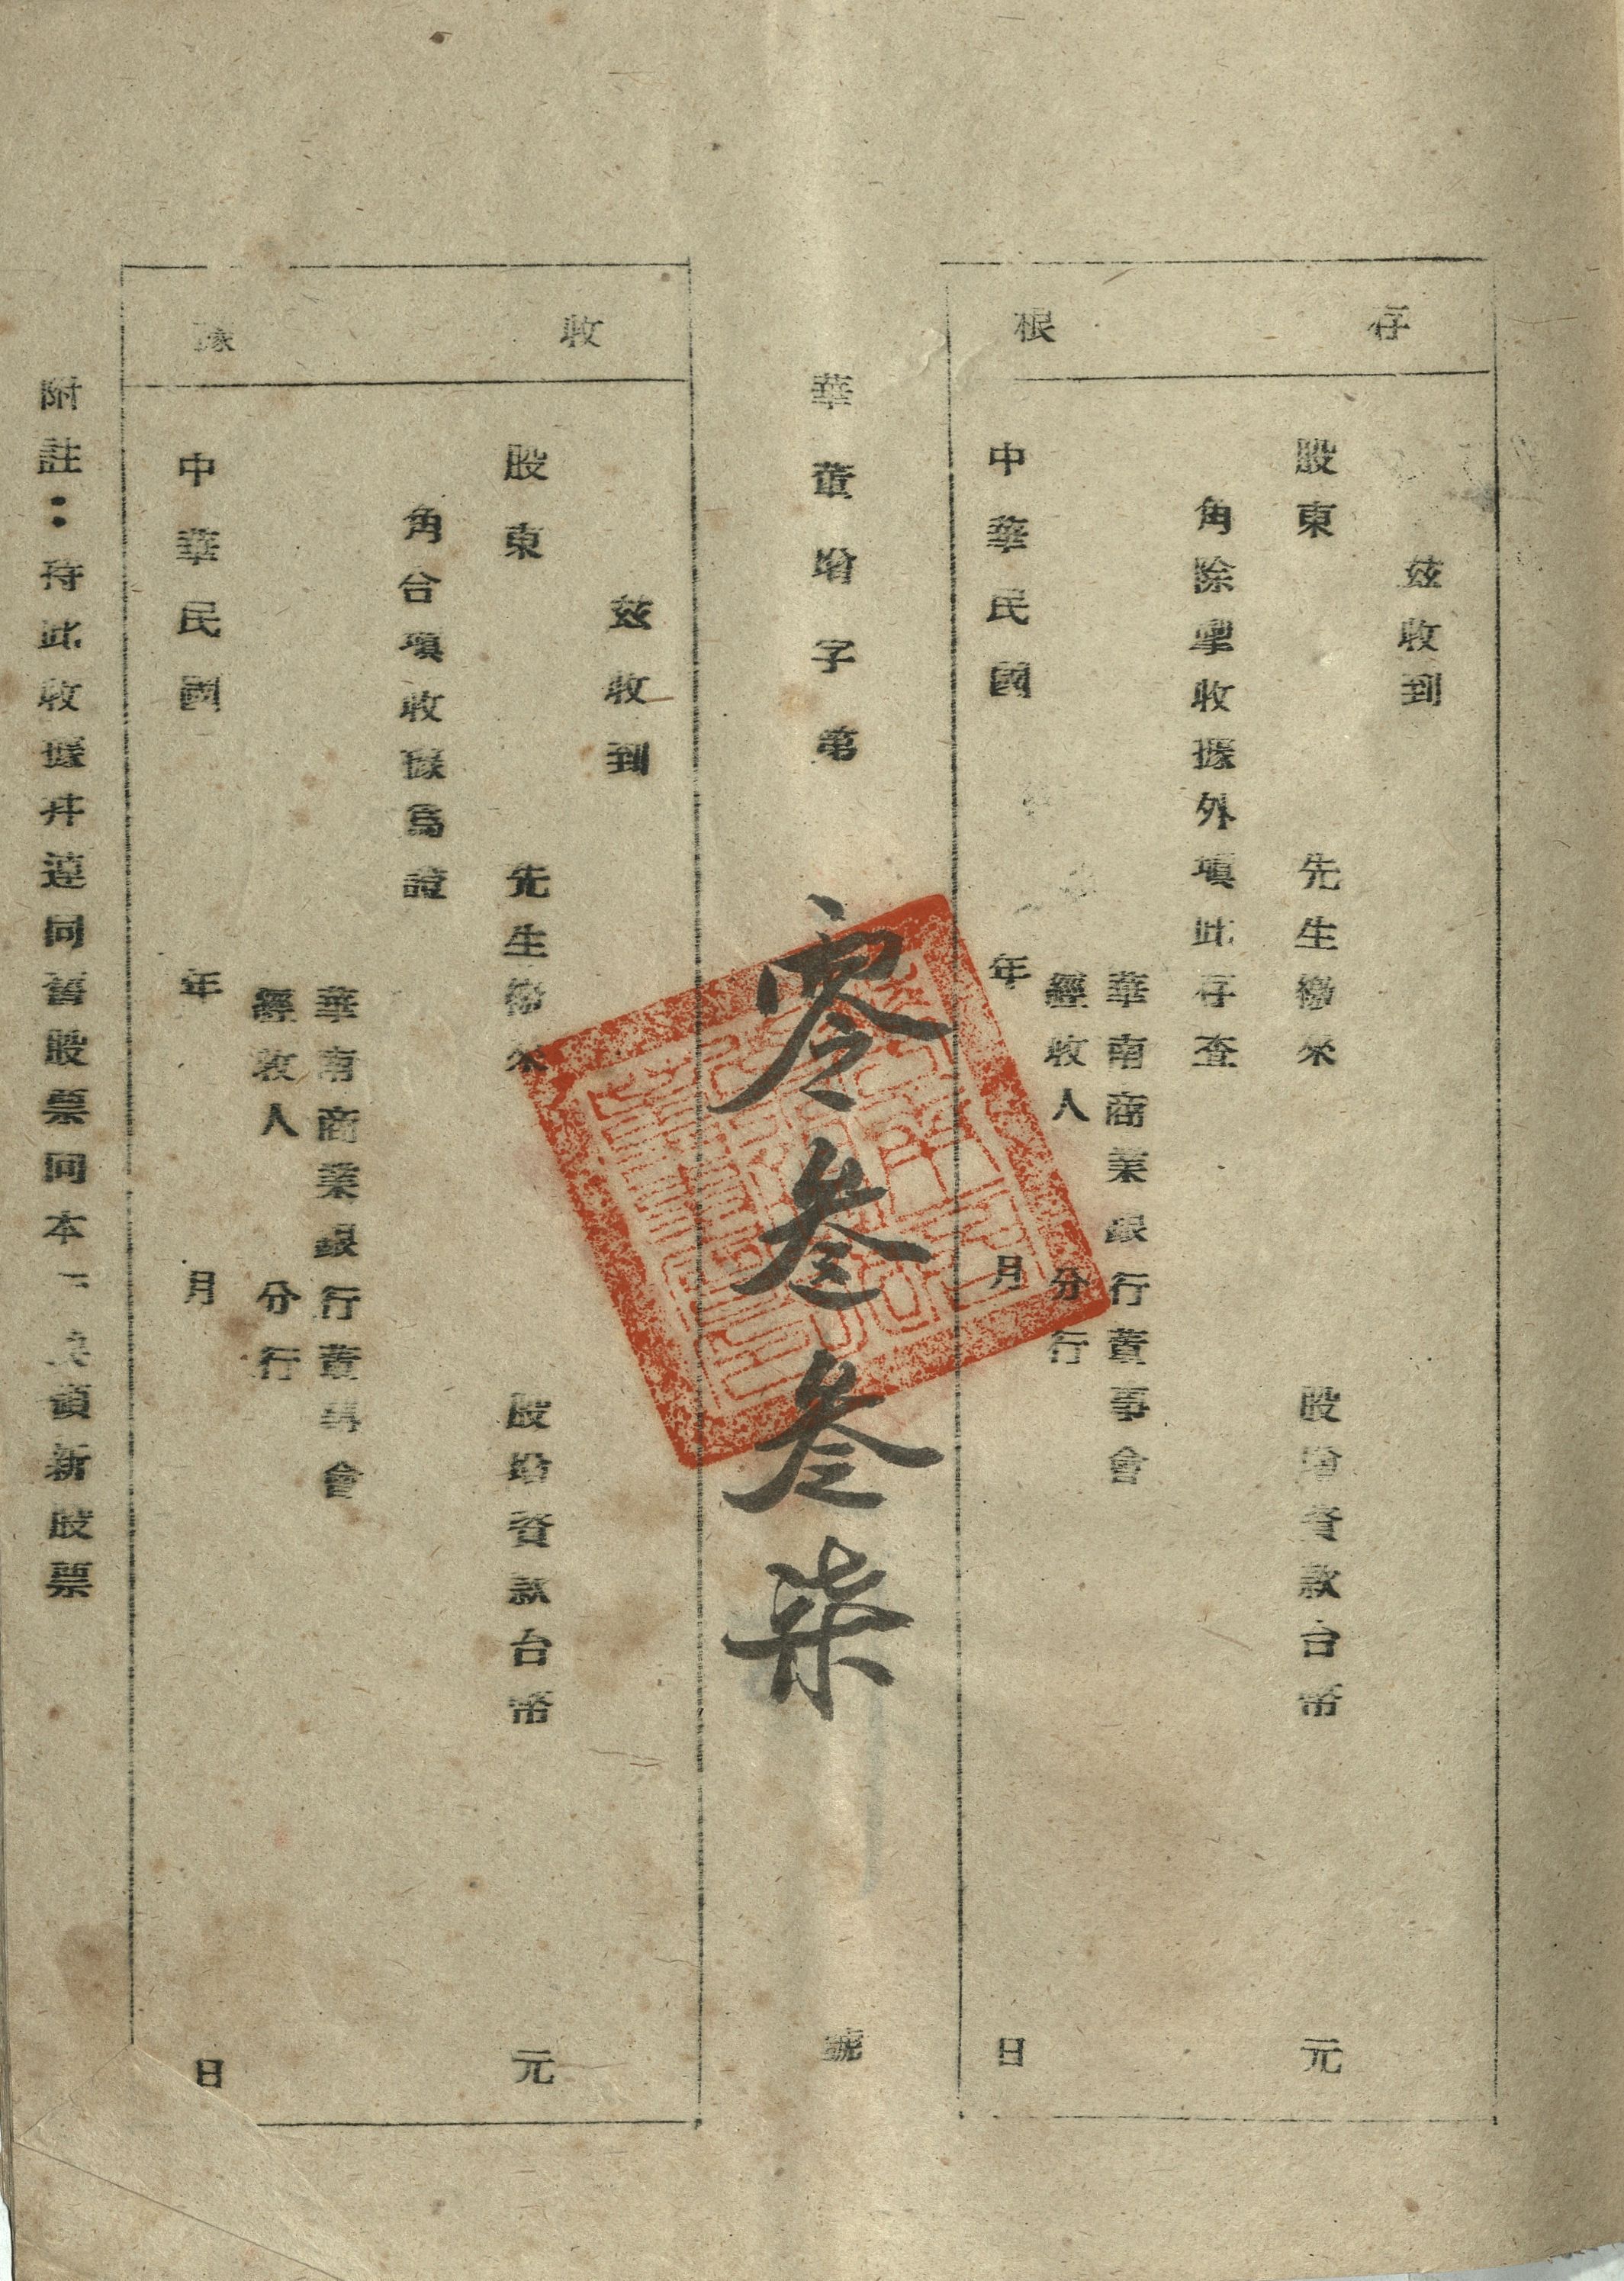 存根
茲收到
股東　先生繳來　股增資款台幣　元
角除掣收據外填此存查
華南商業銀行董事會
經收人　分行
中華民國　年　月　日
華董增字第　零叁叁柒　號
收據
茲收到
股東　先生繳來　股增資款台幣　元
角合填收據為證
華南商業銀行董事會
經收人　分行
中華民國　年　月　日
附註：持此收據并連同舊股票向本　換領新股票